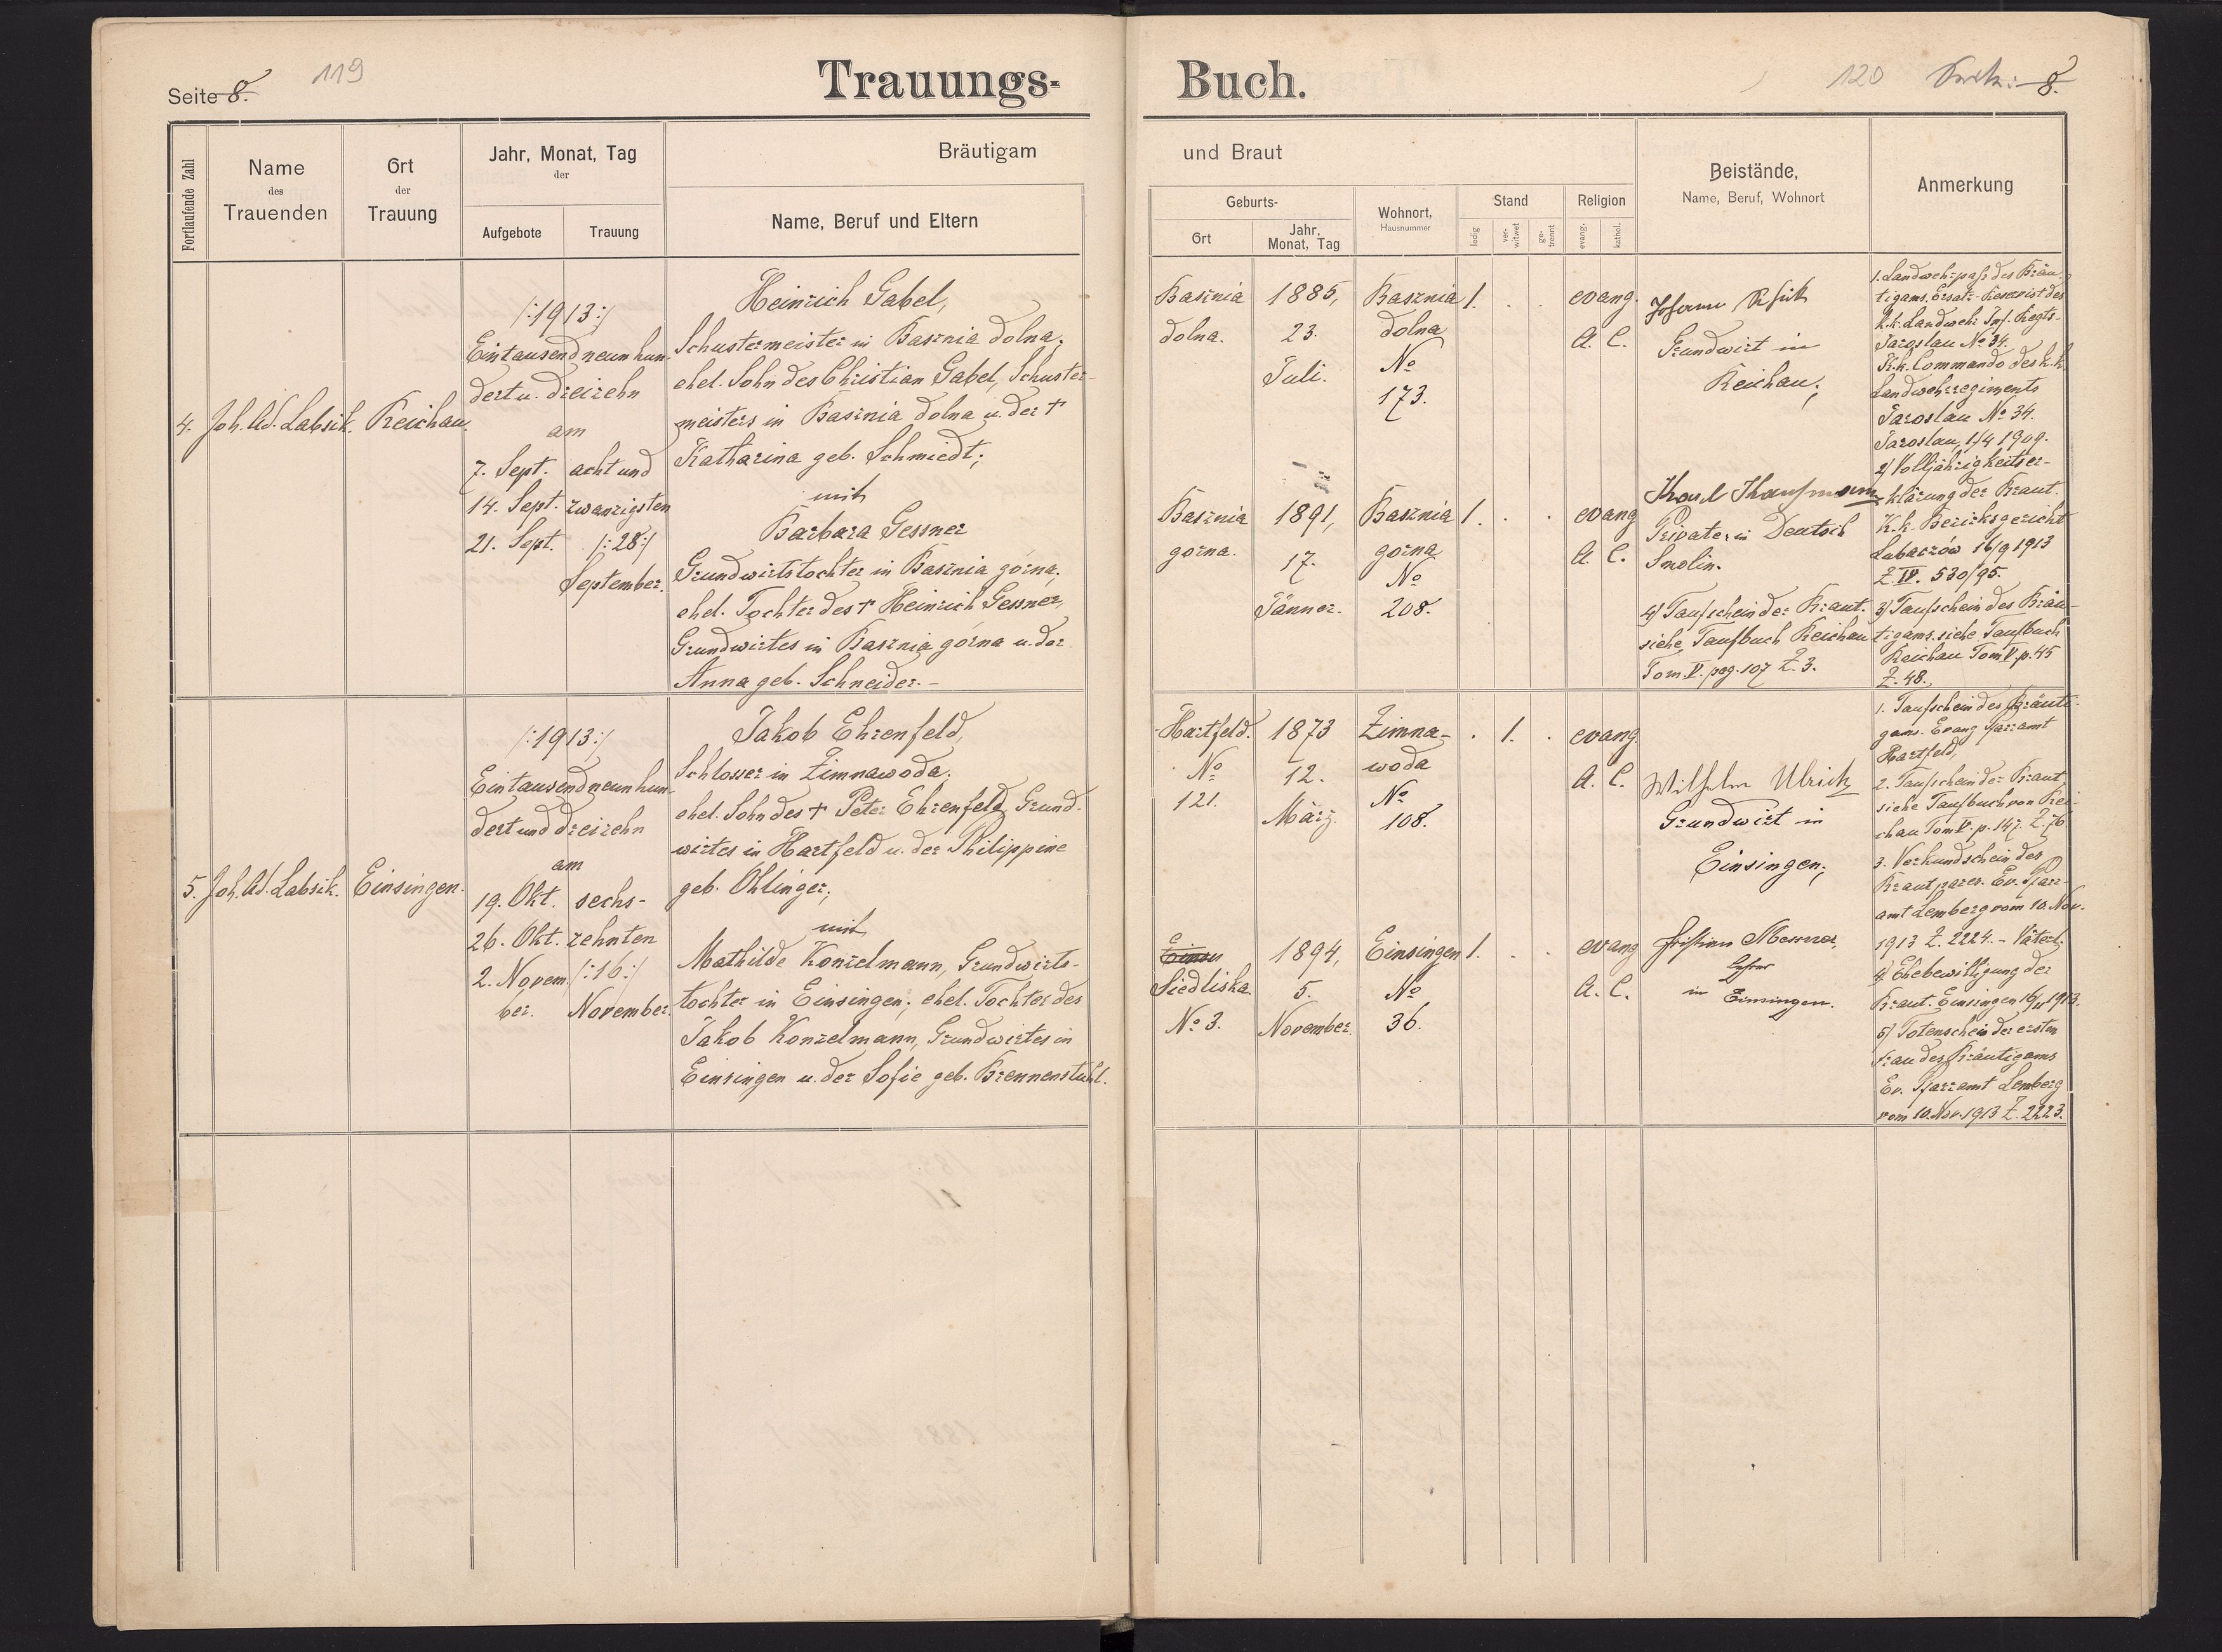 Seite 8.
119
Trauungs-
Buch.
120
Seite: 8.
Fortlaufende Zahl
Name
des
Trauenden
Ort
der
Trauung
Jahr, Monat, Tag
der
Aufgebote
Trauung
Bräutigam
Name, Beruf und Eltern
und Braut
Geburts-
Ort
Jahr,
Monat, Tag
Wohnort,
Hausnummer
Stand
ledig
ver-
witwet
ge-
trennt
Religion
evang.
kathol.
Beistände,
Name, Beruf, Wohnort
Anmerkung
4.
Joh. Ad. Labsik.
Reichau.
/:1913:/
Eintausendneunhun-
dert u. dreizehn
am
7. Sept. acht und
14. Sept. zwanzigsten
21. Sept. /:28:/
September.
Heinrich Gabel,
Schustermeister in Basznia dolna,
ehel. Sohn des Christian Gabel, Schuster-
meisters in Basznia dolna u. der †
Katharina geb. Schmiedt;
mit
Barbara Gessner
Grundwirtstochter in Basznia górna,
ehel. Tochter des † Heinrich Gessner,
Grundwirtes in Basznia górna u. der
Anna geb. Schneider. -
Basznia
dolna.
1885,
23.
Juli.
Basznia
dolna
No
173.
1. . .
evang.
A. C.
Johann
Grundwirt in
Reichau;
Basznia
górna.
1891,
17.
Jänner.
Basznia
górna
No
208.
1. . .
evang
A. C.
Karl Kaufmann
Privater in Deutsch
Smolin.
4) Taufschein der Braut.
siehe Taufbuch Reichau
Tom. V. pag. 107 Z. 3.
1. Landwehrpaß des Bräu-
tigams. Ersatz-Reservist des
k. k. Landwehr Inf. Regts-
Jaroslau No 34.
K. k. Commando des k. k.
Landwehrregiments
Jaroslau No 34.
Jaroslau, 1/4 1909.
2) Volljährigkeitser-
klärung der Braut.
K. k. Bezirksgericht
Lubaczów 16/9 1913
Z. IV. 530/95.
3) Taufschein des Bräu-
tigams. siehe Taufbuch
Reichau Tom V. p. 45
Z. 48.
5.
Joh. Ad. Labsik.
Einsingen.
/:1913:/
Eintausendneunhun-
dert und dreizehn
am
19. Okt. sechs-
26. Okt. zehnten
2. Novem- /:16:/
ber. November.
Jakob Ehrenfeld,
Schlosser in Zimnawoda,
ehel. Sohn des † Peter Ehrenfeld, Grund-
wirtes in Hartfeld u. der Philippine
geb. Ohlinger;
mit
Mathilde Konzelmann, Grundwirts-
tochter in Einsingen; ehel. Tochter des
Jakob Konzelmann, Grundwirtes in
Einsingen u. der Sofie geb. Brennenstuhl.
Hartfeld.
No
121.
1873
12.
März.
Zimna-
woda
No
108.
. 1. .
evang.
A. C.
Wilhelm Ulrich
Grundwirt in
Einsingen;
Siedliska.
No 3.
1894,
5.
November.
Einsingen
No
36.
1. . .
evang
A. C.
Christian Messner,
Lehrer
in Einsingen.
1. Taufschein des Bräuti-
gams. Evang Pfarramt
Hartfeld,
2. Taufschein der Braut
siehe Taufbuch von Rei-
chau Tom V. p. 147. Z. 76
3. Verkundschein des
Brautpares. Ev. Pfarr-
amt Lemberg vom 10. Nov.
1913 Z. 2224. - Väterl.
4. Ehebewilligung der
Braut. Einsingen 16/11 1913.
5) Totenschein der ersten
Frau des Bräutigams
Ev. Pfarramt Lemberg
vom 10. Nov. 1913 Z. 2223.